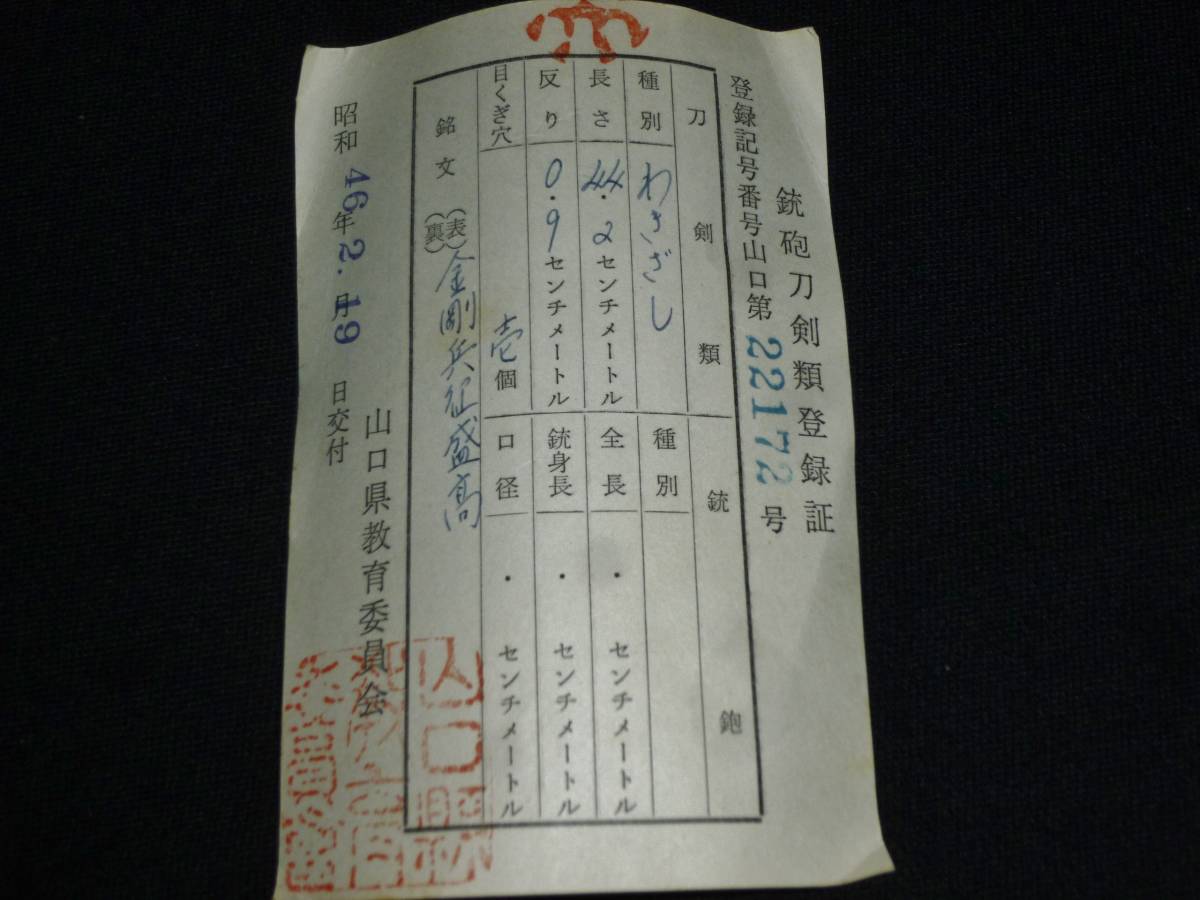 銃砲刀剣類登録証
登録記号番号山口第22172号
刀剣類
種別 わきざし
長さ 44.2センチメートル
反り 0.9センチメートル
目くぎ穴 壱個
銃砲
種別
全長 ・ センチメートル
銃身長 ・ センチメートル
口径 ・ センチメートル
銘文 (表) 金剛兵衛盛高
(裏)
昭和46年2.月19日交付
山口県教育委員会